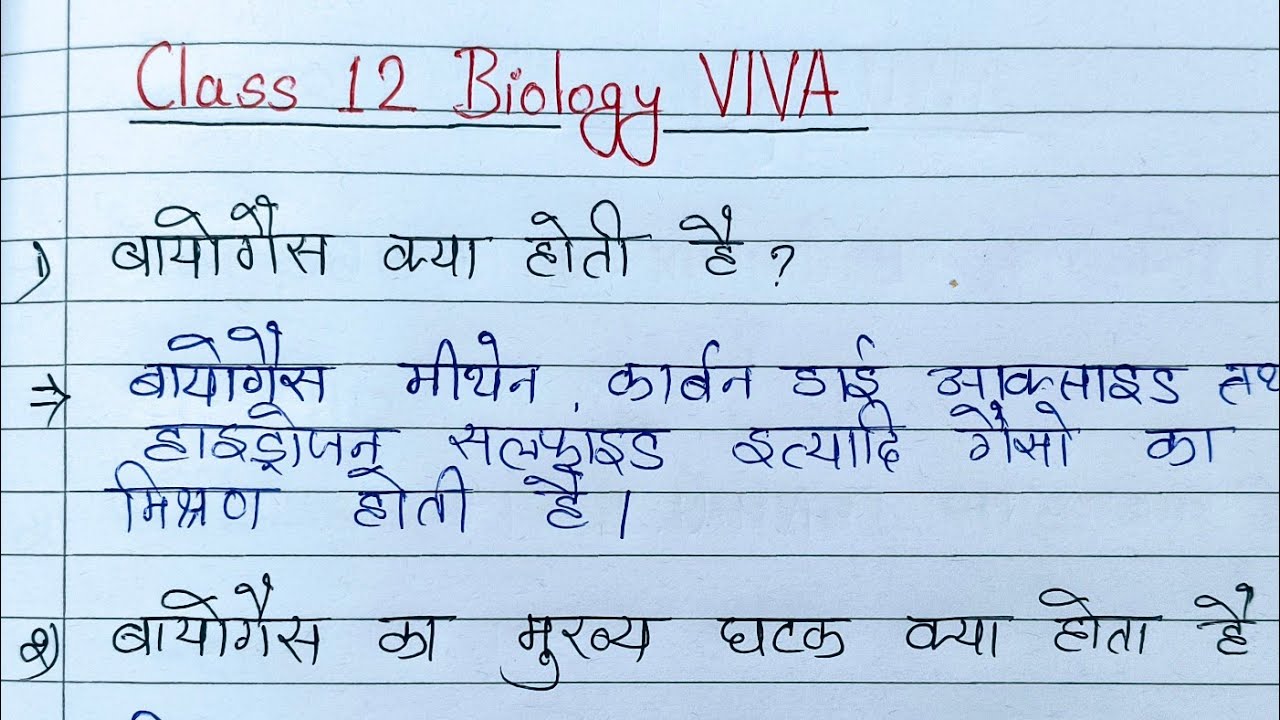 Class 12 Biology VIVA
1) बायोगैस क्या होती है ?
⇒ बायोगैस मीथेन , कार्बन डाई आक्साइड तथ
हाइड्रोजन सल्फाइड इत्यादि गैसो का
मिश्रण होती है ।
२) बायोगैस का मुख्य घटक क्या होता है